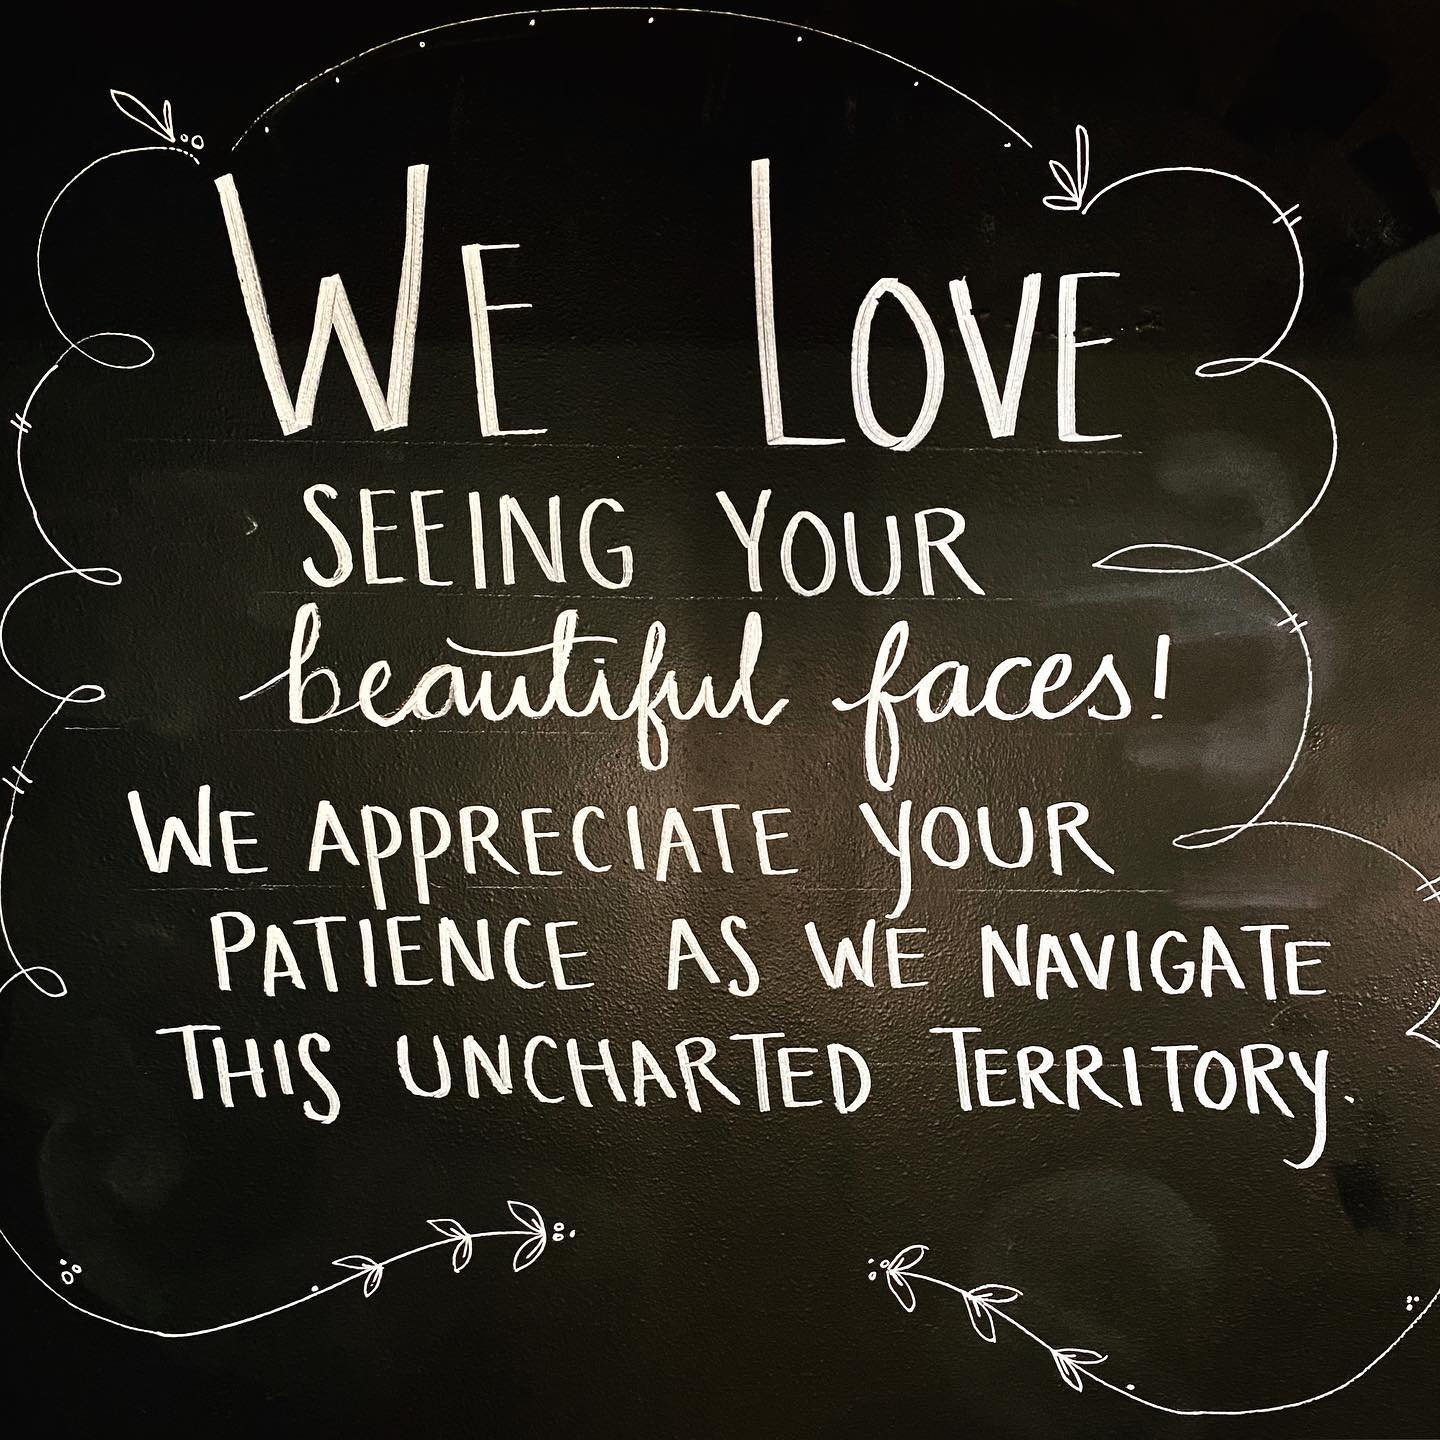 WE LOVE
SEEING YOUR
beautiful faces!
WE APPRECIATE YOUR
PATIENCE AS WE NAVIGATE
THIS UNCHARTED TERRITORY.